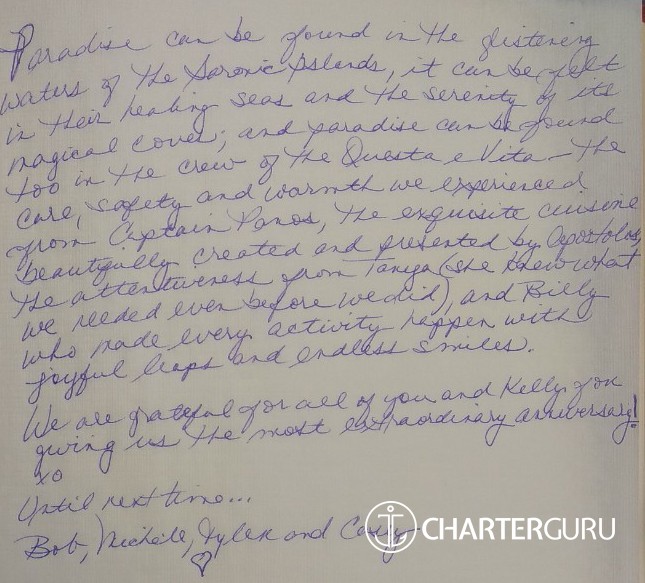 Paradise can be found in the glistening
waters of the Saronic Islands, it can be felt
in their healing seas and the serenity of its
magical coves; and paradise can be found
too in the crew of the Questa e Vita – the
care, safety and warmth we experienced
from Captain Panos, the exquisite cuisine
beautifully created and presented by Apostolos,
the attentiveness from Tanya (she knew what
we needed even before we did), and Billy
who made every activity happen with
joyful leaps and endless smiles.
We are grateful for all of you and Kelly for
giving us the most extraordinary anniversary!
xo
Until next time...
Bob, Michele, Tyler and
CHARTERGURU